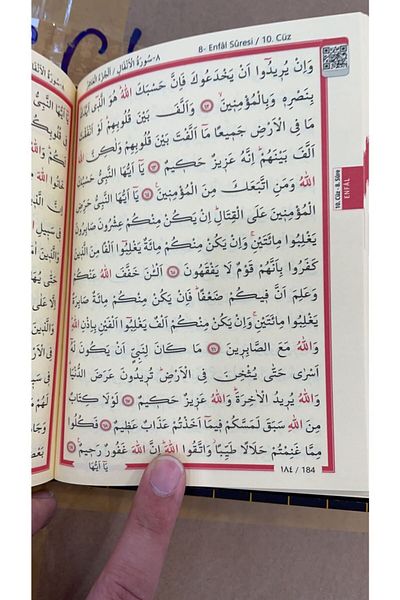 ٨-سُورَةُ الْاَنْفَالِ / اَلْجُزْءُ الْعَاشِرُ 8- Enfâl Sûresi / 10. Cüz
وَاِنْ يُرِيدُٓوا اَنْ يَخْدَعُوكَ فَاِنَّ حَسْبَكَ اللّٰهُ هُوَ الَّذ۪ٓي اَيَّدَكَ
بِنَصْرِه۪ وَبِالْمُؤْمِن۪ينَۙ ﴿٦٢﴾ وَاَلَّفَ بَيْنَ قُلُوبِهِمْۜ لَوْ اَنْفَقْتَ
مَا فِي الْاَرْضِ جَم۪يعًا مَٓا اَلَّفْتَ بَيْنَ قُلُوبِهِمْ وَلٰكِنَّ اللّٰهَ
اَلَّفَ بَيْنَهُمْۜ اِنَّهُ عَز۪يزٌ حَك۪يمٌ ﴿٦٣﴾ يَٓا اَيُّهَا النَّبِيُّ حَسْبُكَ
اللّٰهُ وَمَنِ اتَّبَعَكَ مِنَ الْمُؤْمِن۪ينَ۟ ﴿٦٤﴾ يَٓا اَيُّهَا النَّبِيُّ حَرِّضِ
الْمُؤْمِن۪ينَ عَلَى الْقِتَالِۜ اِنْ يَكُنْ مِنْكُمْ عِشْرُونَ صَابِرُونَ
يَغْلِبُوا مِائَتَيْنِۚ وَاِنْ يَكُنْ مِنْكُمْ مِائَةٌ يَغْلِبُٓوا اَلْفًا مِنَ الَّذ۪ينَ
كَفَرُوا بِاَنَّهُمْ قَوْمٌ لَا يَفْقَهُونَ ﴿٦٥﴾ اَلْـٰٔنَ خَفَّفَ اللّٰهُ عَنْكُمْ
وَعَلِمَ اَنَّ ف۪يكُمْ ضَعْفًاۜ فَاِنْ يَكُنْ مِنْكُمْ مِائَةٌ صَابِرَةٌ
يَغْلِبُوا مِائَتَيْنِۚ وَاِنْ يَكُنْ مِنْكُمْ اَلْفٌ يَغْلِبُٓوا اَلْفَيْنِ بِاِذْنِ اللّٰهِۜ
وَاللّٰهُ مَعَ الصَّابِر۪ينَ ﴿٦٦﴾ مَا كَانَ لِنَبِيٍّ اَنْ يَكُونَ لَهُٓ
اَسْرٰى حَتّٰى يُثْخِنَ فِي الْاَرْضِۜ تُر۪يدُونَ عَرَضَ الدُّنْيَاۗ
وَاللّٰهُ يُر۪يدُ الْاٰخِرَةَۜ وَاللّٰهُ عَز۪يزٌ حَك۪يمٌ ﴿٦٧﴾ لَوْلَا كِتَابٌ
مِنَ اللّٰهِ سَبَقَ لَمَسَّكُمْ ف۪يمَٓا اَخَذْتُمْ عَذَابٌ عَظ۪يمٌ ﴿٦٨﴾ فَكُلُوا
مِمَّا غَنِمْتُمْ حَلَالًا طَيِّبًاۘ وَاتَّقُوا اللّٰهَۜ اِنَّ اللّٰهَ غَفُورٌ رَح۪يمٌ۟ ﴿٦٩﴾
يَٓا اَيُّهَا
١٨٤ / 184
10. Cüz - 8. Sûre
ENFÂL